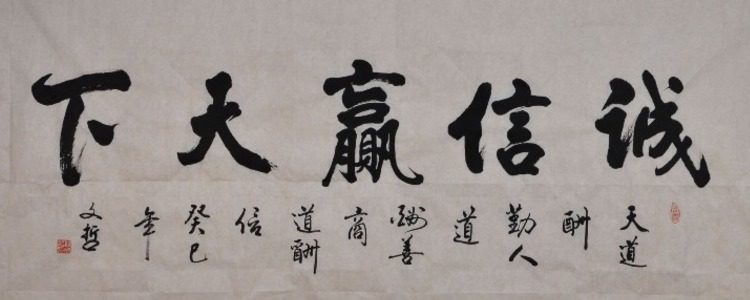 诚信赢天下
天道酬勤人道酬善商道酬信癸巳年文哲